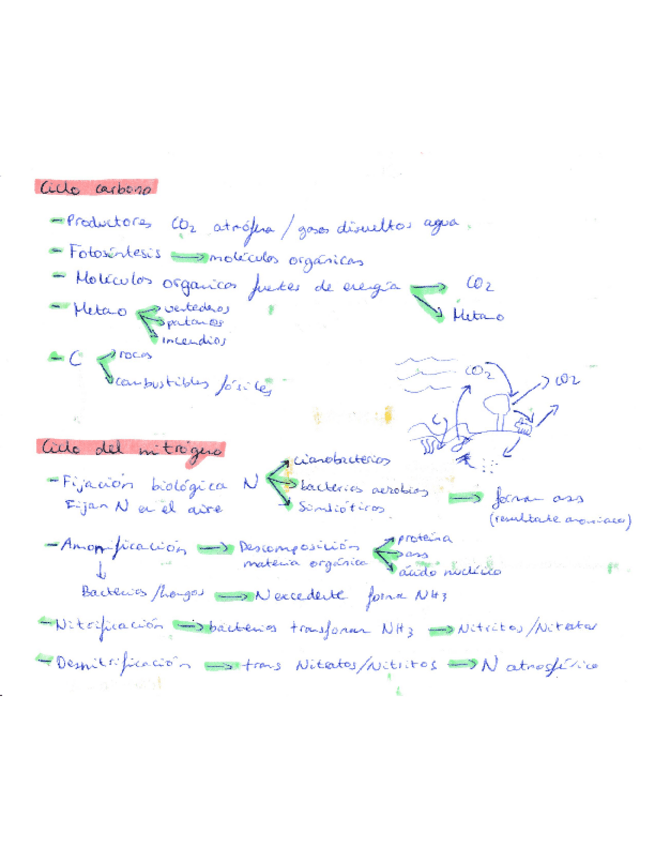 Ciclo carbono
- Productores CO2 atmófera / gases disueltos agua.
- Fotosíntesis → moléculas orgánicas
- Moléculas organicas fuentes de energía → CO2
Metano
- Metano → vertederos
→ pantanos
→ incendios
- C → rocas
→ combustibles fósiles
CO2
CO2
C
Ciclo del nitrógeno
- Fijación biológica N → cianobacterias
Fijan N en el aire → bacterias aerobias → forman aas
→ Simbióticos (resultate amoniaco)
- Amonificación → Descomposición → proteína
materia orgánica → aas
→ ácido nucléico
↓
Bacterias / hongos → N excedente forma NH3
- Nitrificación → bacterias transforman NH3 → Nitritos / Nitratos
- Desnitrificación → trans Nitratos / Nitritos → N atmosférico